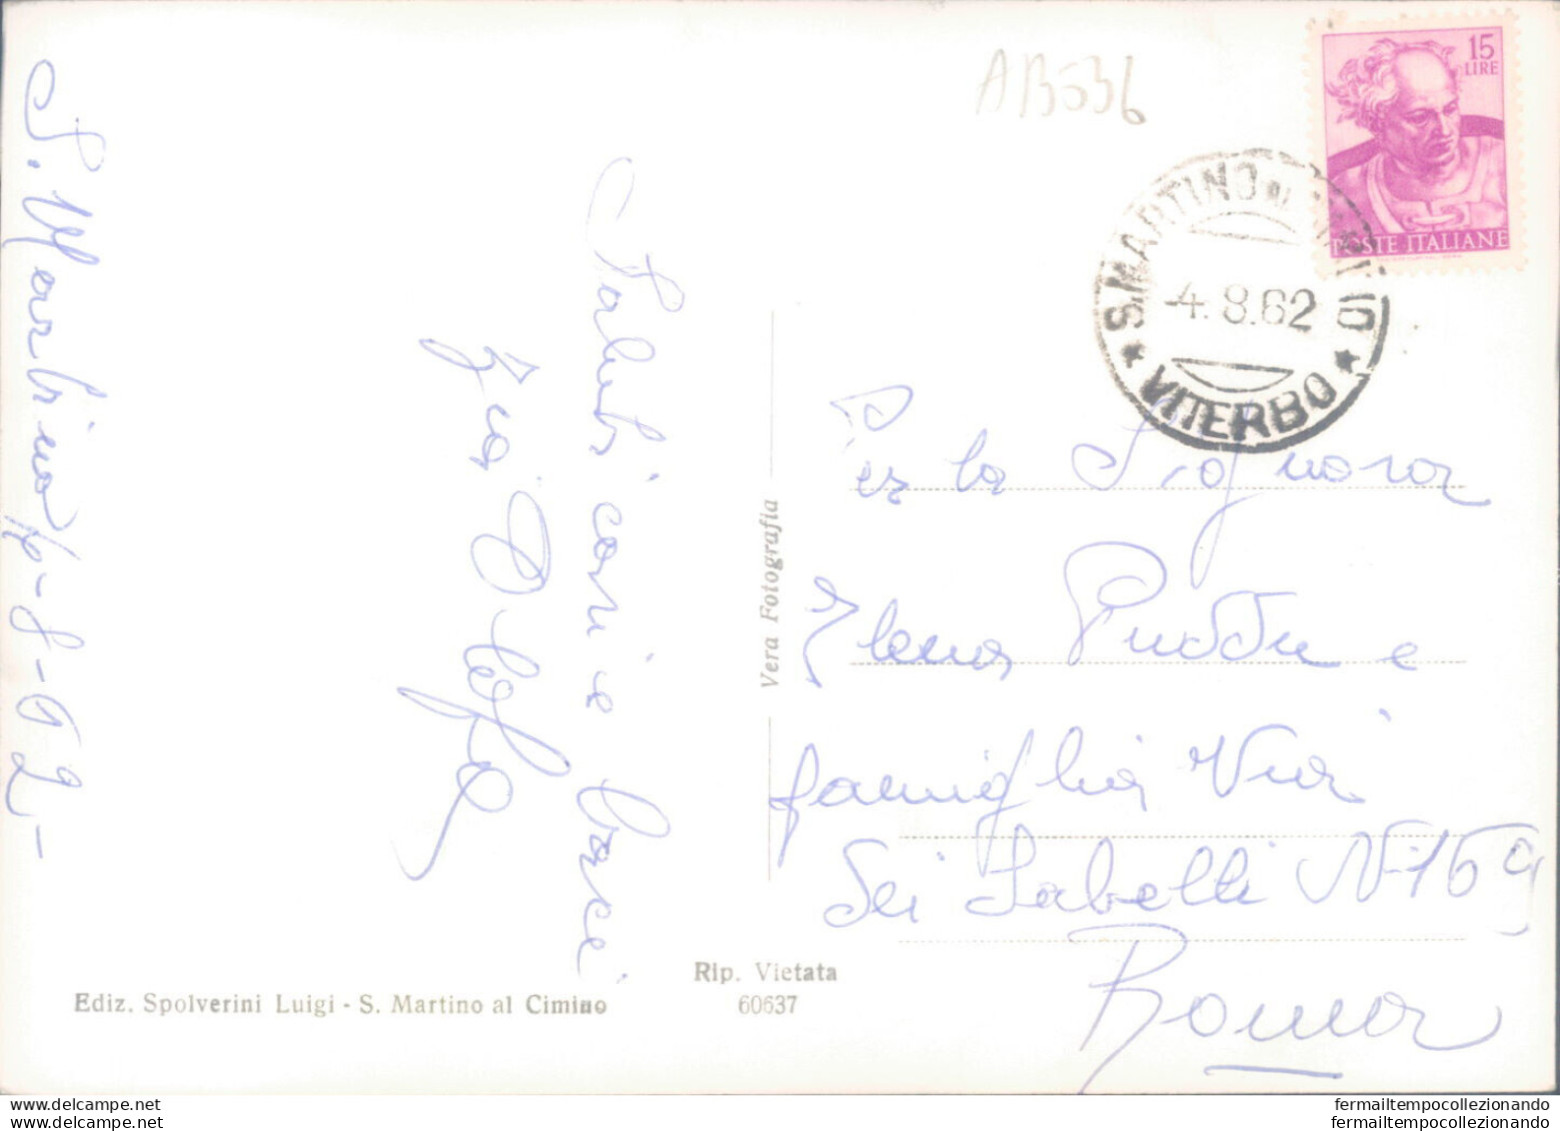 AB536
15
LIRE
POSTE ITALIANE
S. MARTINO AL CIMINO
-4.8.62
* VITERBO *
S. Martino
8-62-
Saluti cari e baci
zia Olga
Vera Fotografia
Per la Signora
Elena Puddu e
famiglia Via
dei Sabelli N-169
Roma
Rip. Vietata
60637
Ediz. Spolverini Luigi - S. Martino al Cimino
www.delcampe.net
www.delcampe.net
fermailtempocollezionando
fermailtempocollezionando